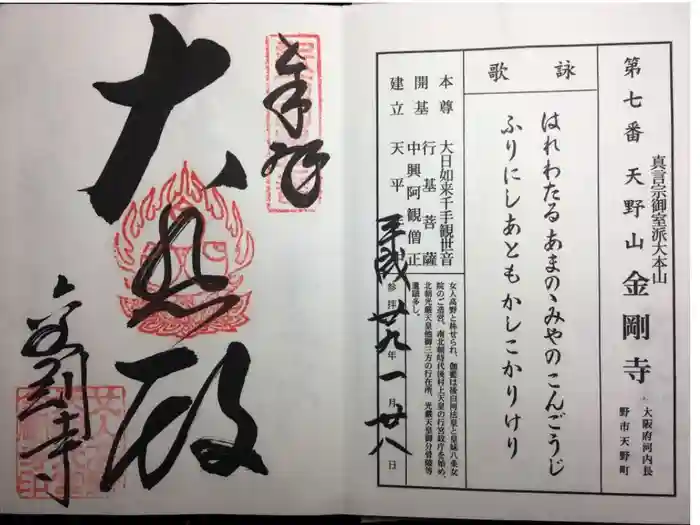 第七番 天野山 金剛寺
真言宗御室派大本山
大阪府河内長
野市天野町
詠歌
はれわたるあまのゝみやのこんごうじ
ふりにしあともかしこかりけり
本尊 大日如来千手観世音
開基 行基菩薩
中興阿観僧正
建立 天平
女人高野と称せられ、伽藍は後白河法皇と皇妹八条女
院のご造営、南北朝時代後村上天皇の行宮政庁を始め、
北朝光厳天皇他御三方の行在所、光厳天皇御分骨陵等
遺蹟多し。
参拝 平成廿九年一月廿八日
奉拝
大
殿
金剛寺